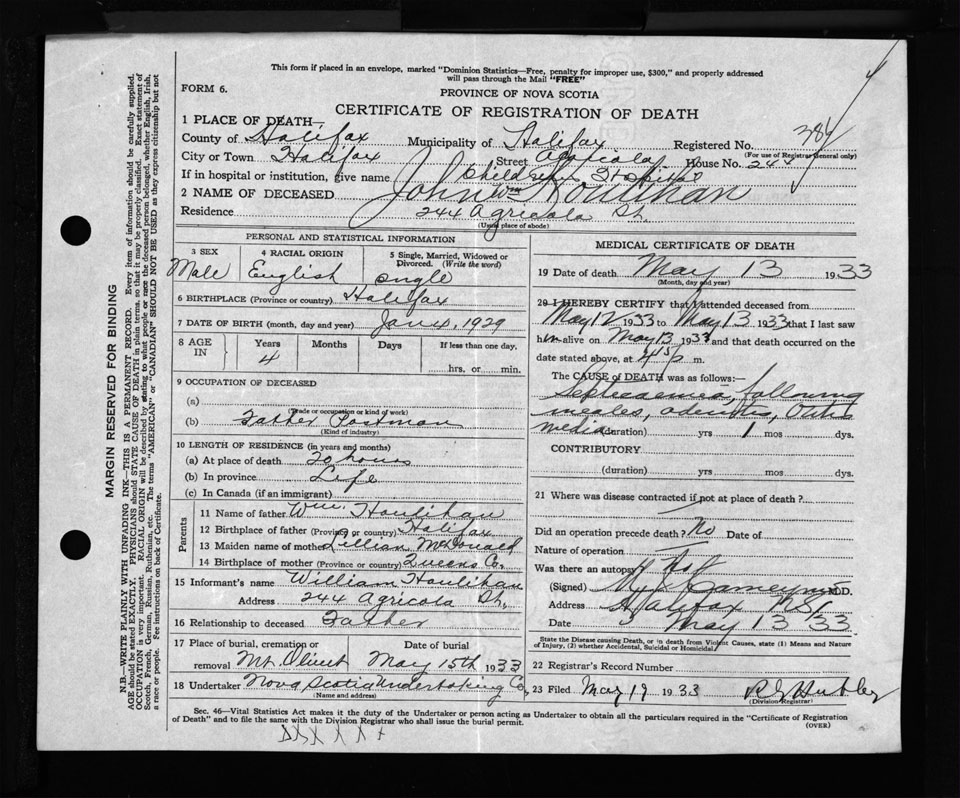 This form if placed in an envelope, marked "Dominion Statistics—Free, penalty for improper use, $300," and properly addressed
will pass through the Mail "FREE"
FORM 6.
PROVINCE OF NOVA SCOTIA
CERTIFICATE OF REGISTRATION OF DEATH
1 PLACE OF DEATH—
County of Halifax Municipality of Halifax Registered No. 384
(For use of Registrar General only)
City or Town Halifax Street Agricola House No. 244
If in hospital or institution, give name Children's Hospital
2 NAME OF DECEASED John Wm Houlihan
Residence 244 Agricola St.
(Usual place of abode)
PERSONAL AND STATISTICAL INFORMATION
3 SEX 4 RACIAL ORIGIN 5 Single, Married, Widowed or
Divorced. (Write the word)
Male English Single
6 BIRTHPLACE (Province or country) Halifax
7 DATE OF BIRTH (month, day and year) Jan 4, 1929
8 AGE IN Years Months Days If less than one day.
4 hrs. or min.
9 OCCUPATION OF DECEASED
(a)
(Trade or occupation or kind of work)
(b) Father Postman
(Kind of industry)
10 LENGTH OF RESIDENCE (in years and months)
(a) At place of death 20 hours
(b) In province Life
(c) In Canada (if an immigrant)
Parents
11 Name of father Wm. Houlihan
12 Birthplace of father (Province or country) Halifax
13 Maiden name of mother Lillian McDonald
14 Birthplace of mother (Province or country) Queens Co.
15 Informant's name William Houlihan
Address 244 Agricola St.
16 Relationship to deceased Father
17 Place of burial, cremation or Date of burial
removal Mt. Olivet May 15th 1933
18 Undertaker Nova Scotia Undertaking Co.
(Name and address)
MEDICAL CERTIFICATE OF DEATH
19 Date of death May 13 1933
(Month, day and year)
20 I HEREBY CERTIFY that I attended deceased from
May 12 1933 to May 13 1933 that I last saw
him alive on May 13 1933 and that death occurred on the
date stated above, at 415 p m.
The CAUSE of DEATH was as follows:
Septicaemia, following
meales, adenitis, Otitis
media (duration) yrs 1 mos dys.
CONTRIBUTORY
(duration) yrs. mos. dys.
21 Where was disease contracted if not at place of death?
Did an operation precede death? No Date of
Nature of operation
Was there an autopsy?
(Signed) M.D.
Address Halifax N.S.
Date May 13 33
State the Disease causing Death, or in death from Violent Causes, state (1) Means and Nature
of Injury, (2) whether Accidental, Suicidal or Homicidal.
22 Registrar's Record Number
23 Filed May 19 1933
(Division Registrar)
Sec. 46—Vital Statistics Act makes it the duty of the Undertaker or person acting as Undertaker to obtain all the particulars required in the "Certificate of Registration
of Death" and to file the same with the Division Registrar who shall issue the burial permit. (OVER)
MARGIN RESERVED FOR BINDING
N.B.—WRITE PLAINLY WITH UNFADING INK—THIS IS A PERMANENT RECORD. Every item of information should be carefully supplied.
AGE should be stated EXACTLY. PHYSICIANS should STATE CAUSE OF DEATH in plain terms, so that it may be properly classified. Exact statement of
OCCUPATION is very important. RACIAL ORIGIN will be described by stating to what people or race the deceased person belonged, whether English, Irish,
Scotch, French, German, Russian, Ruthenian, etc. The terms "AMERICAN" or "CANADIAN" SHOULD NOT BE USED as they express citizenship but not
a race or people. See instructions on back of Certificate.